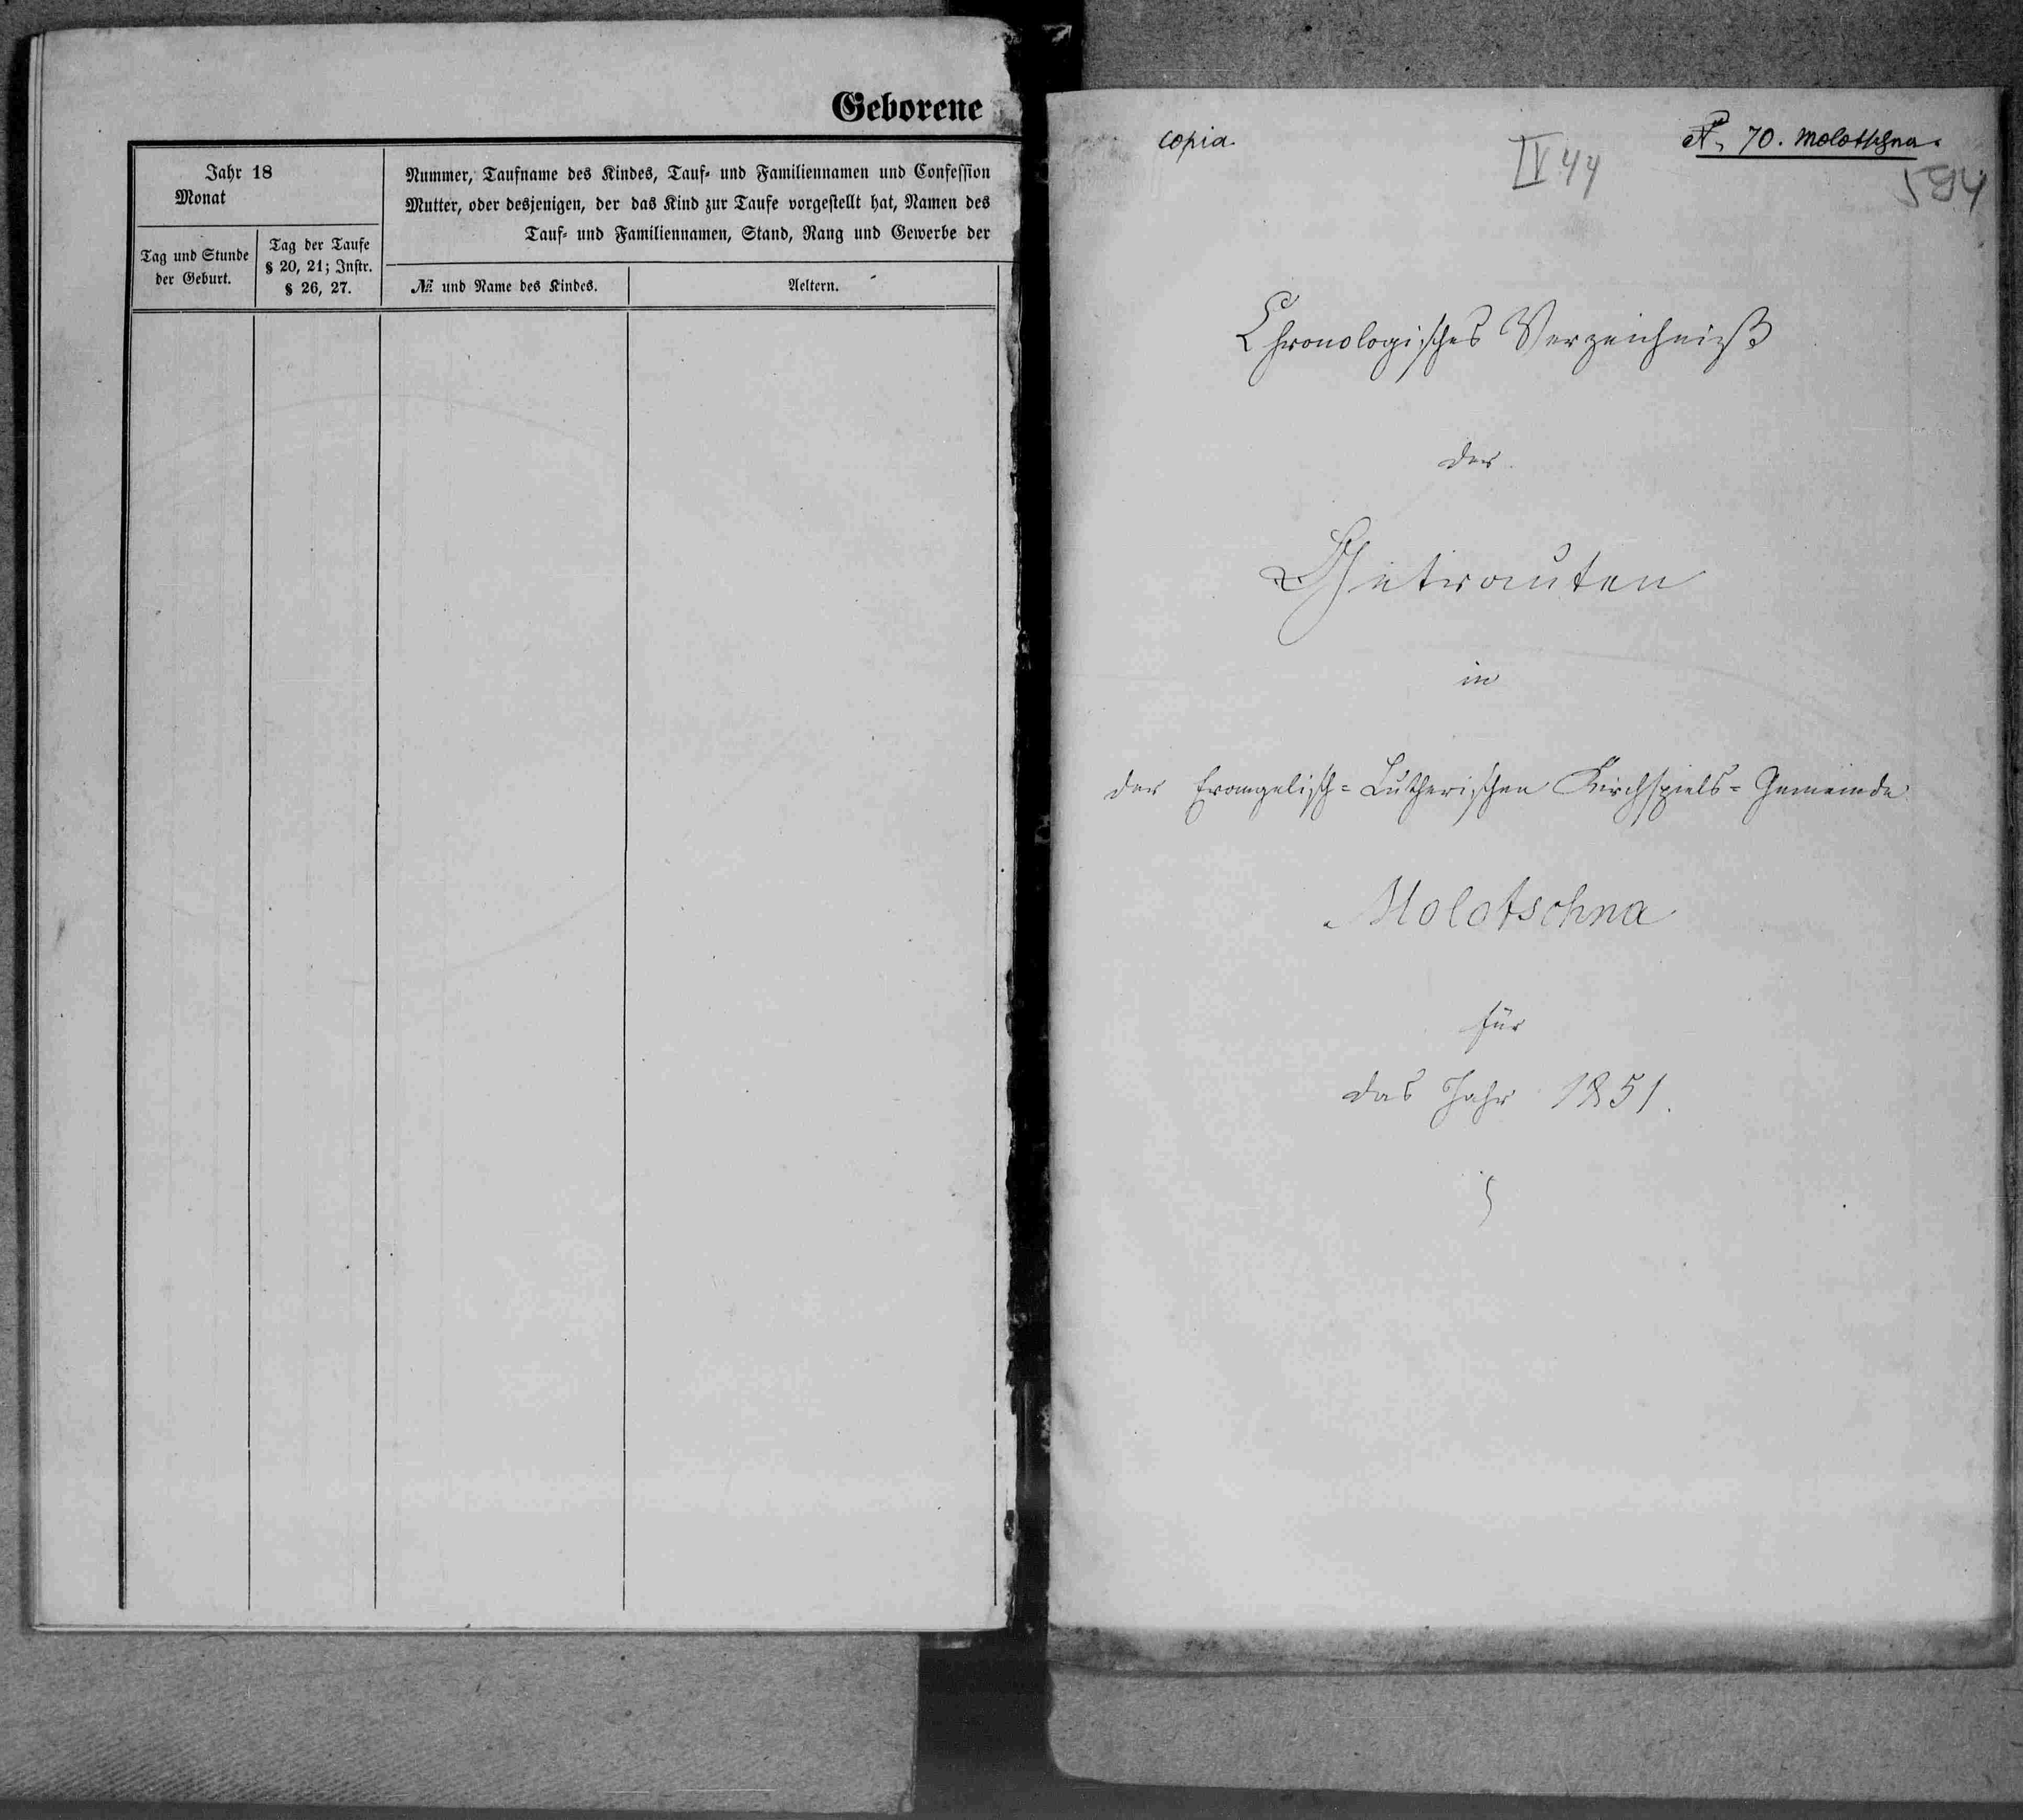 Geborene
Jahr 18
Monat
Nummer, Taufname des Kindes, Tauf- und Familiennamen und Confession
Mutter, oder desjenigen, der das Kind zur Taufe vorgestellt hat, Namen des
Tauf- und Familiennamen, Stand, Rang und Gewerbe der
Tag und Stunde
der Geburt.
Tag der Taufe
§ 20, 21; Instr.
§ 26, 27.
№ und Name des Kindes.
Aeltern.
copia.
IV 44
70. Molotschna.
594
Chronologisches Verzeichniß
der
Getrauten
in
der Evangelisch-Lutherischen Kirchspiels-Gemeinde
Molotschna
für
das Jahr 1851.